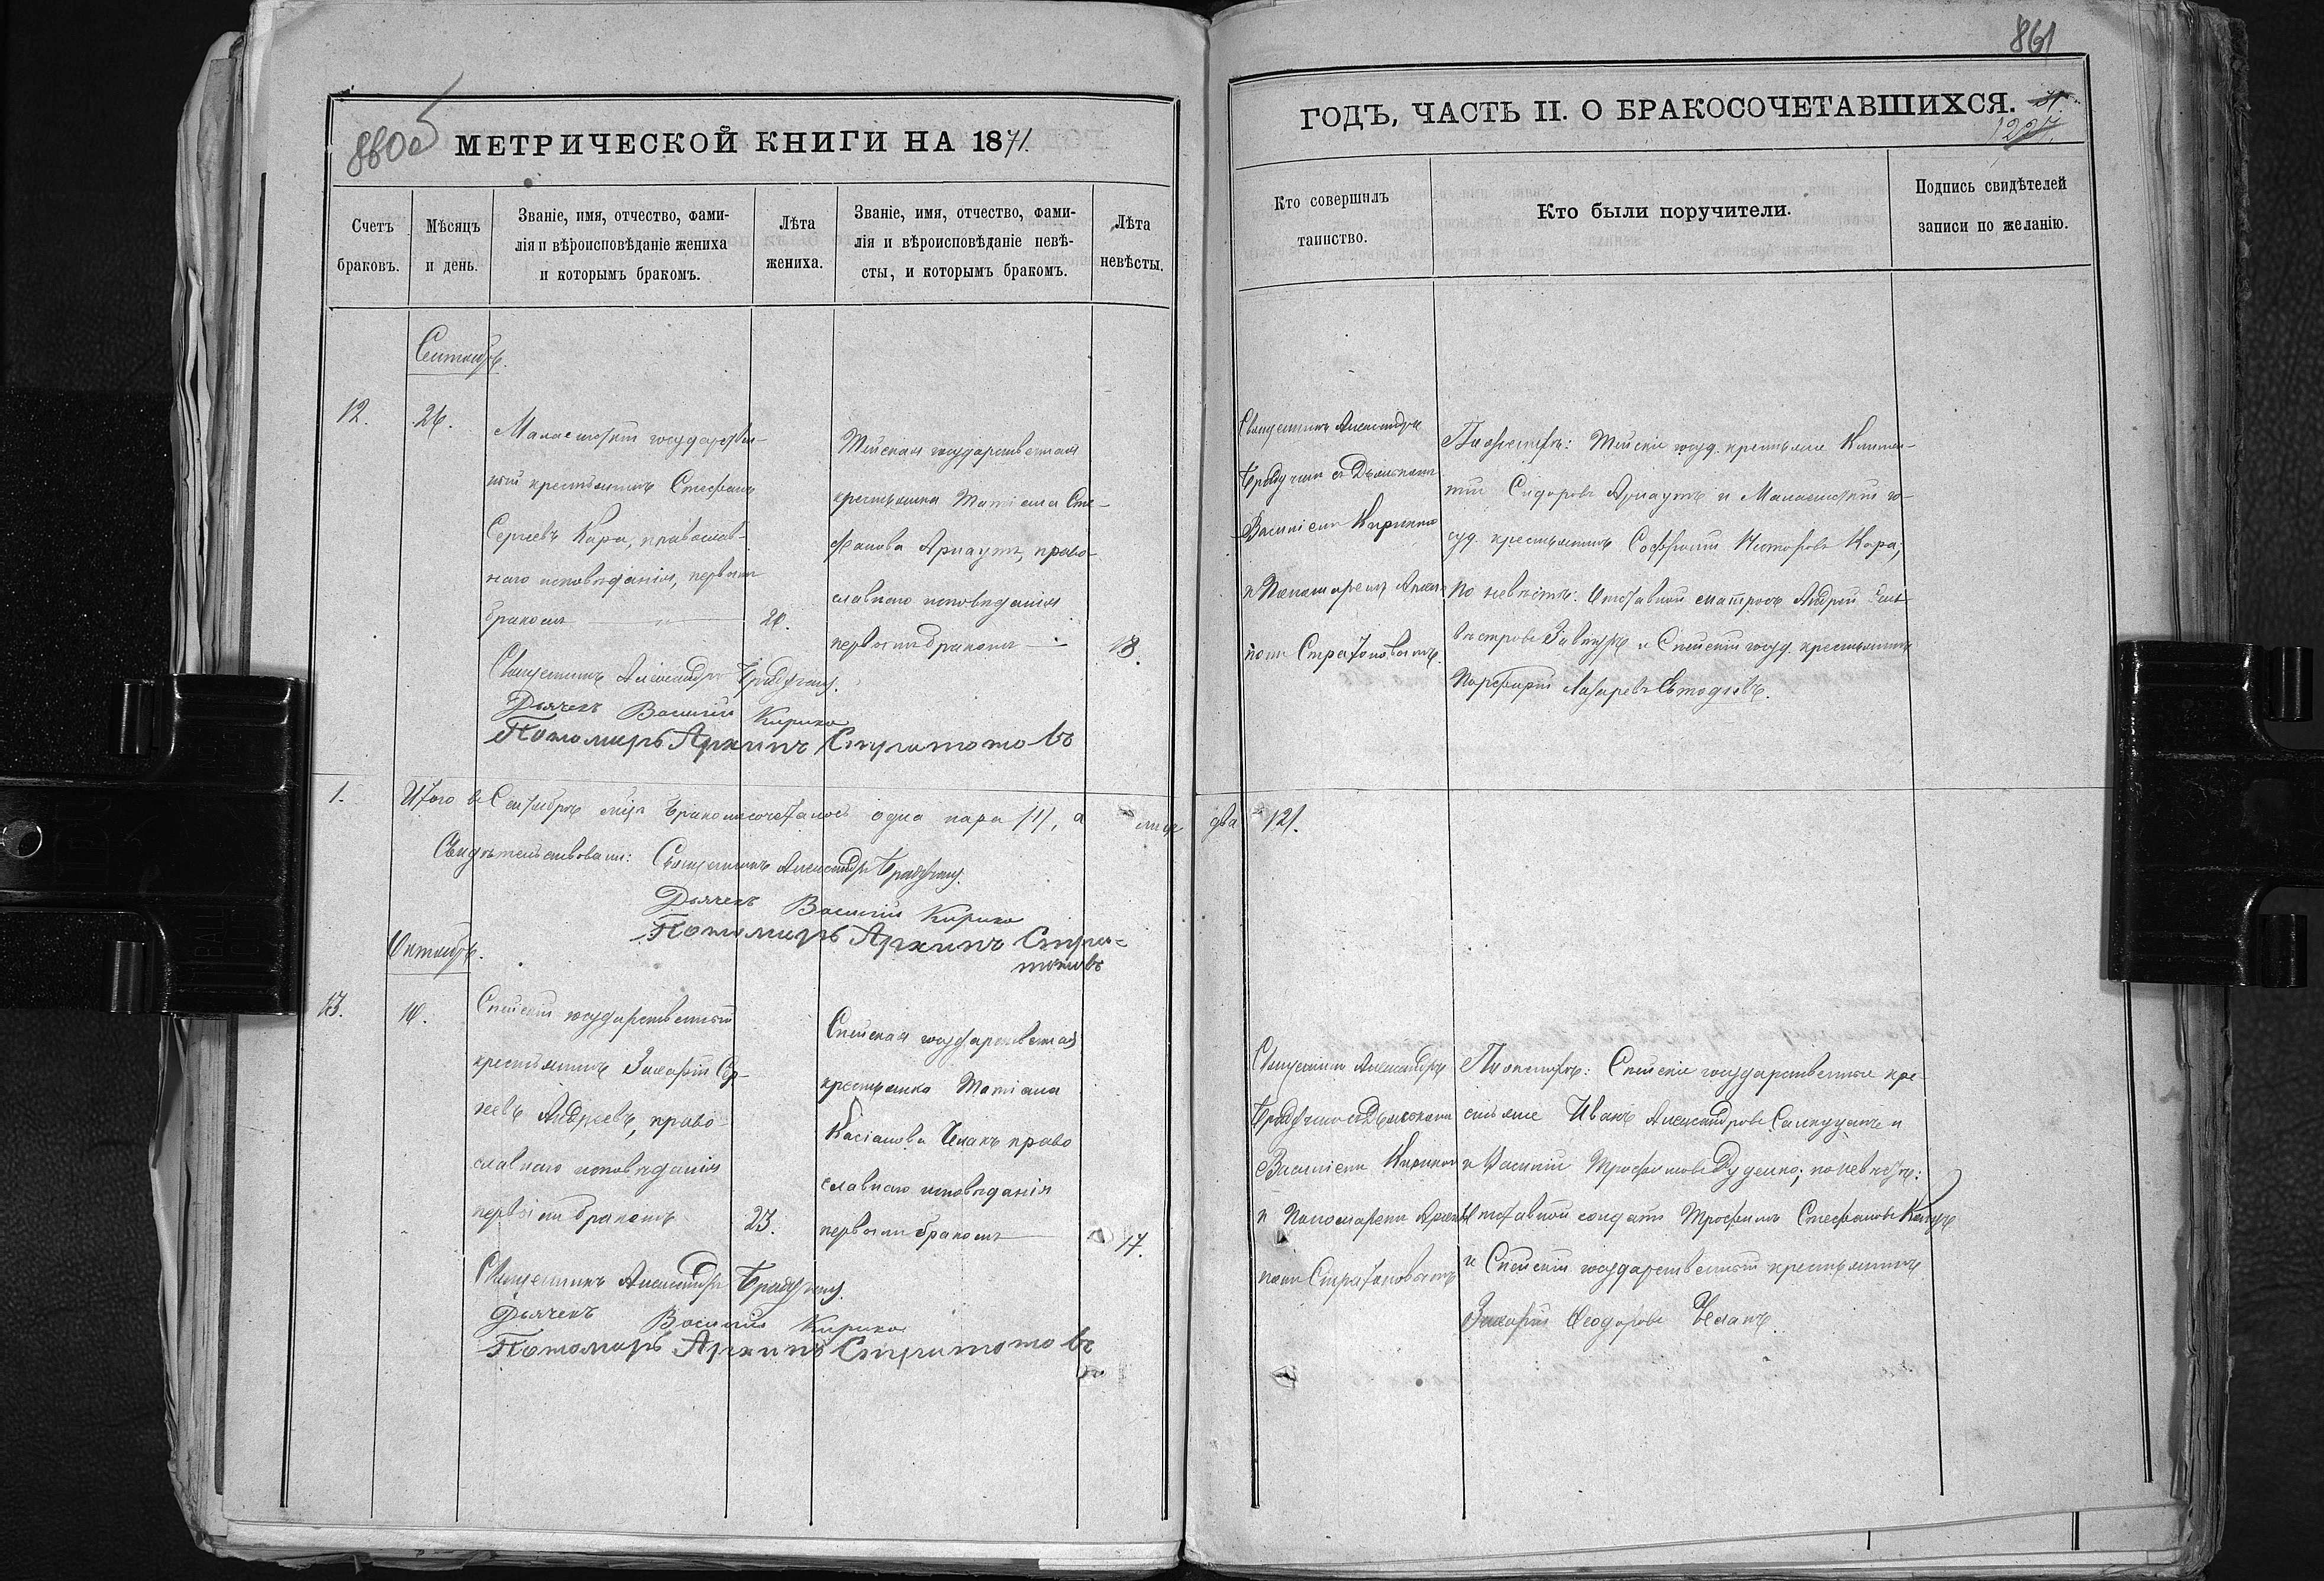 860об
МЕТРИЧЕСКОЙ КНИГИ НА 1871.
Счетъ
браковъ.
Мѣсяцъ
и день.
Званіе, имя, отчество, фами-
лія и вѣроисповѣданіе жениха
и которымъ бракомъ.
Лѣта
жениха.
Званіе, имя, отчество, фами-
лія и вѣроисповѣданіе невѣ-
сты, и которымъ бракомъ.
Лѣта
невѣсты.
Сентябрь.
12.
26.
Малаештскій государствен-
ный крестьянинъ Стефанъ
Сергѣевъ Кара, православ-
наго исповѣданія, первымъ
бракомъ
Тейская государственная
крестьянка Татіана Сте-
фанова Арнаутъ, право-
славнаго исповѣданія
первымъ бракомъ
18.
Священникъ Александръ
Дьячекъ Василій Кирика
Пономарь Архипъ Стратоновъ
1.
Итого въ Сентябрѣ м‑цѣ бракомъ сочеталось одна пара /1/, а лицъ два /2/.
Свидѣтельствовали: Священникъ Александръ
Дьячекъ Василій Кирика
Пономарь Архипъ Стра-
тоновъ
Октябрь.
13.
10.
Спейскій государственный
крестьянинъ Захарій Сер-
гѣевъ Андреевъ, право-
славнаго исповѣданія
первымъ бракомъ
23.
Спейская государственная
крестьянка Татіана
Касіанова Челакъ право
славнаго исповѣданія
первымъ бракомъ
17.
Священникъ Александръ
Дьячекъ Василій Кирика
Пономарь Архипъ Стратоновъ
861
ГОДЪ, ЧАСТЬ II. О БРАКОСОЧЕТАВШИХСЯ.
1227.
Кто совершилъ
таинство.
Кто были поручители.
Подпись свидѣтелей
записи по желанію.
Священникъ Александръ
съ Дьячкомъ
Василіемъ Кирикою
и Пономаремъ Архи-
помъ Стратоновымъ.
По женихѣ: Тейскіе госуд. крестьяне Климен-
тій Сидоровъ Арнаутъ и Малаештскій го-
суд. крестьянинъ Софроній Кара;
по невѣстѣ: Отставной матросъ Андрей Силь-
вестровъ и Спейскій госуд. крестьянинъ
Порфирій Лазаревъ
Священникъ Александръ
съ Дьячкомъ
Василіемъ Кирикою
и Пономаремъ Архи-
помъ Стратоновымъ
По женихѣ: Спейскіе государственные кре-
стьяне Иванъ Александровъ и
Василій Трофимовъ Руденко; по невѣстѣ:
Отставной солдатъ Трофимъ Стефановъ
и Спейскій государственный крестьянинъ
Захарій Ѳеодоровъ Челакъ.